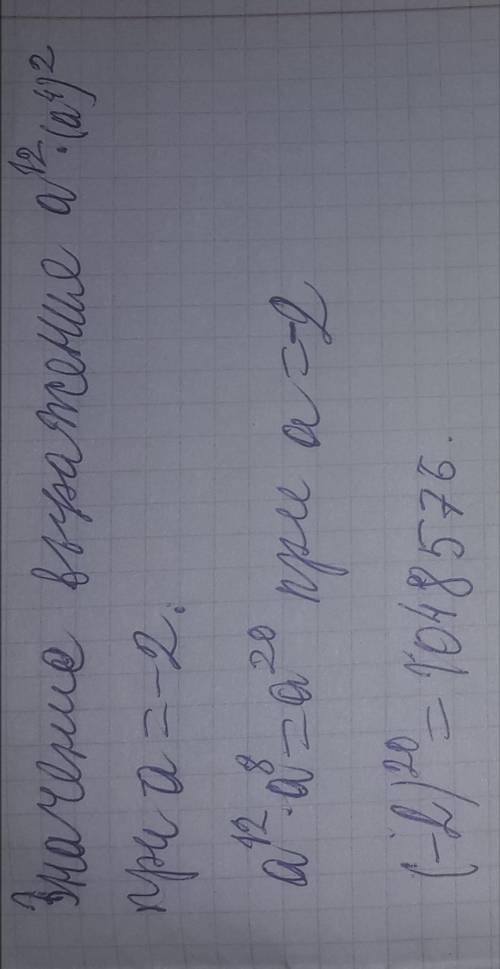 Значение выражение a¹²·(a⁴)²
при a=-2.
a¹²·a⁸=a²⁰ при a=-2
(-2)²⁰=1048576.